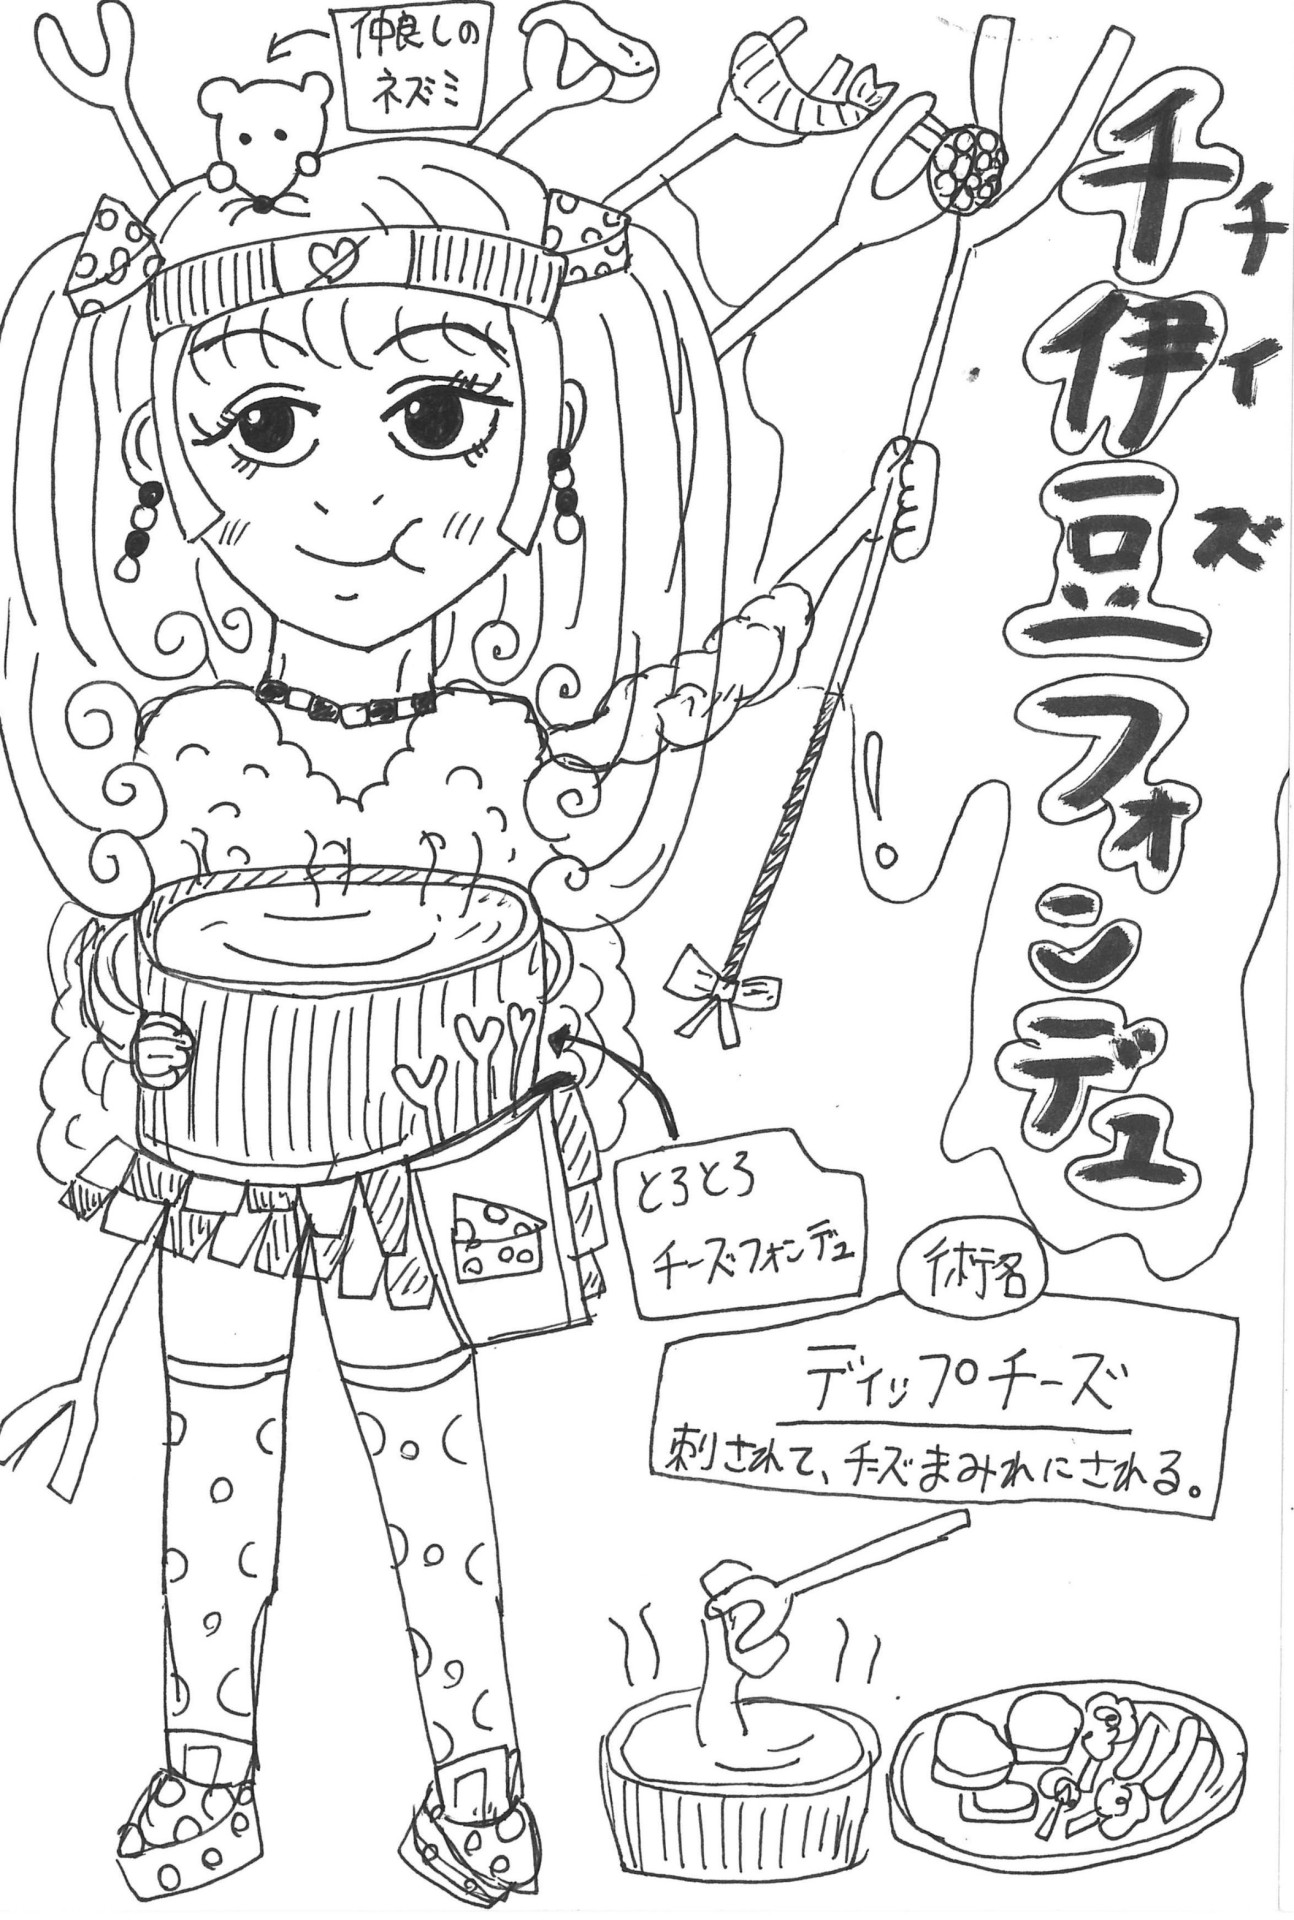 千伊豆フォンデュ
チイズ
仲良しの
ネズミ
とろとろ
チーズフォンデュ
術名
ディップチーズ
刺されて、チーズまみれにされる。